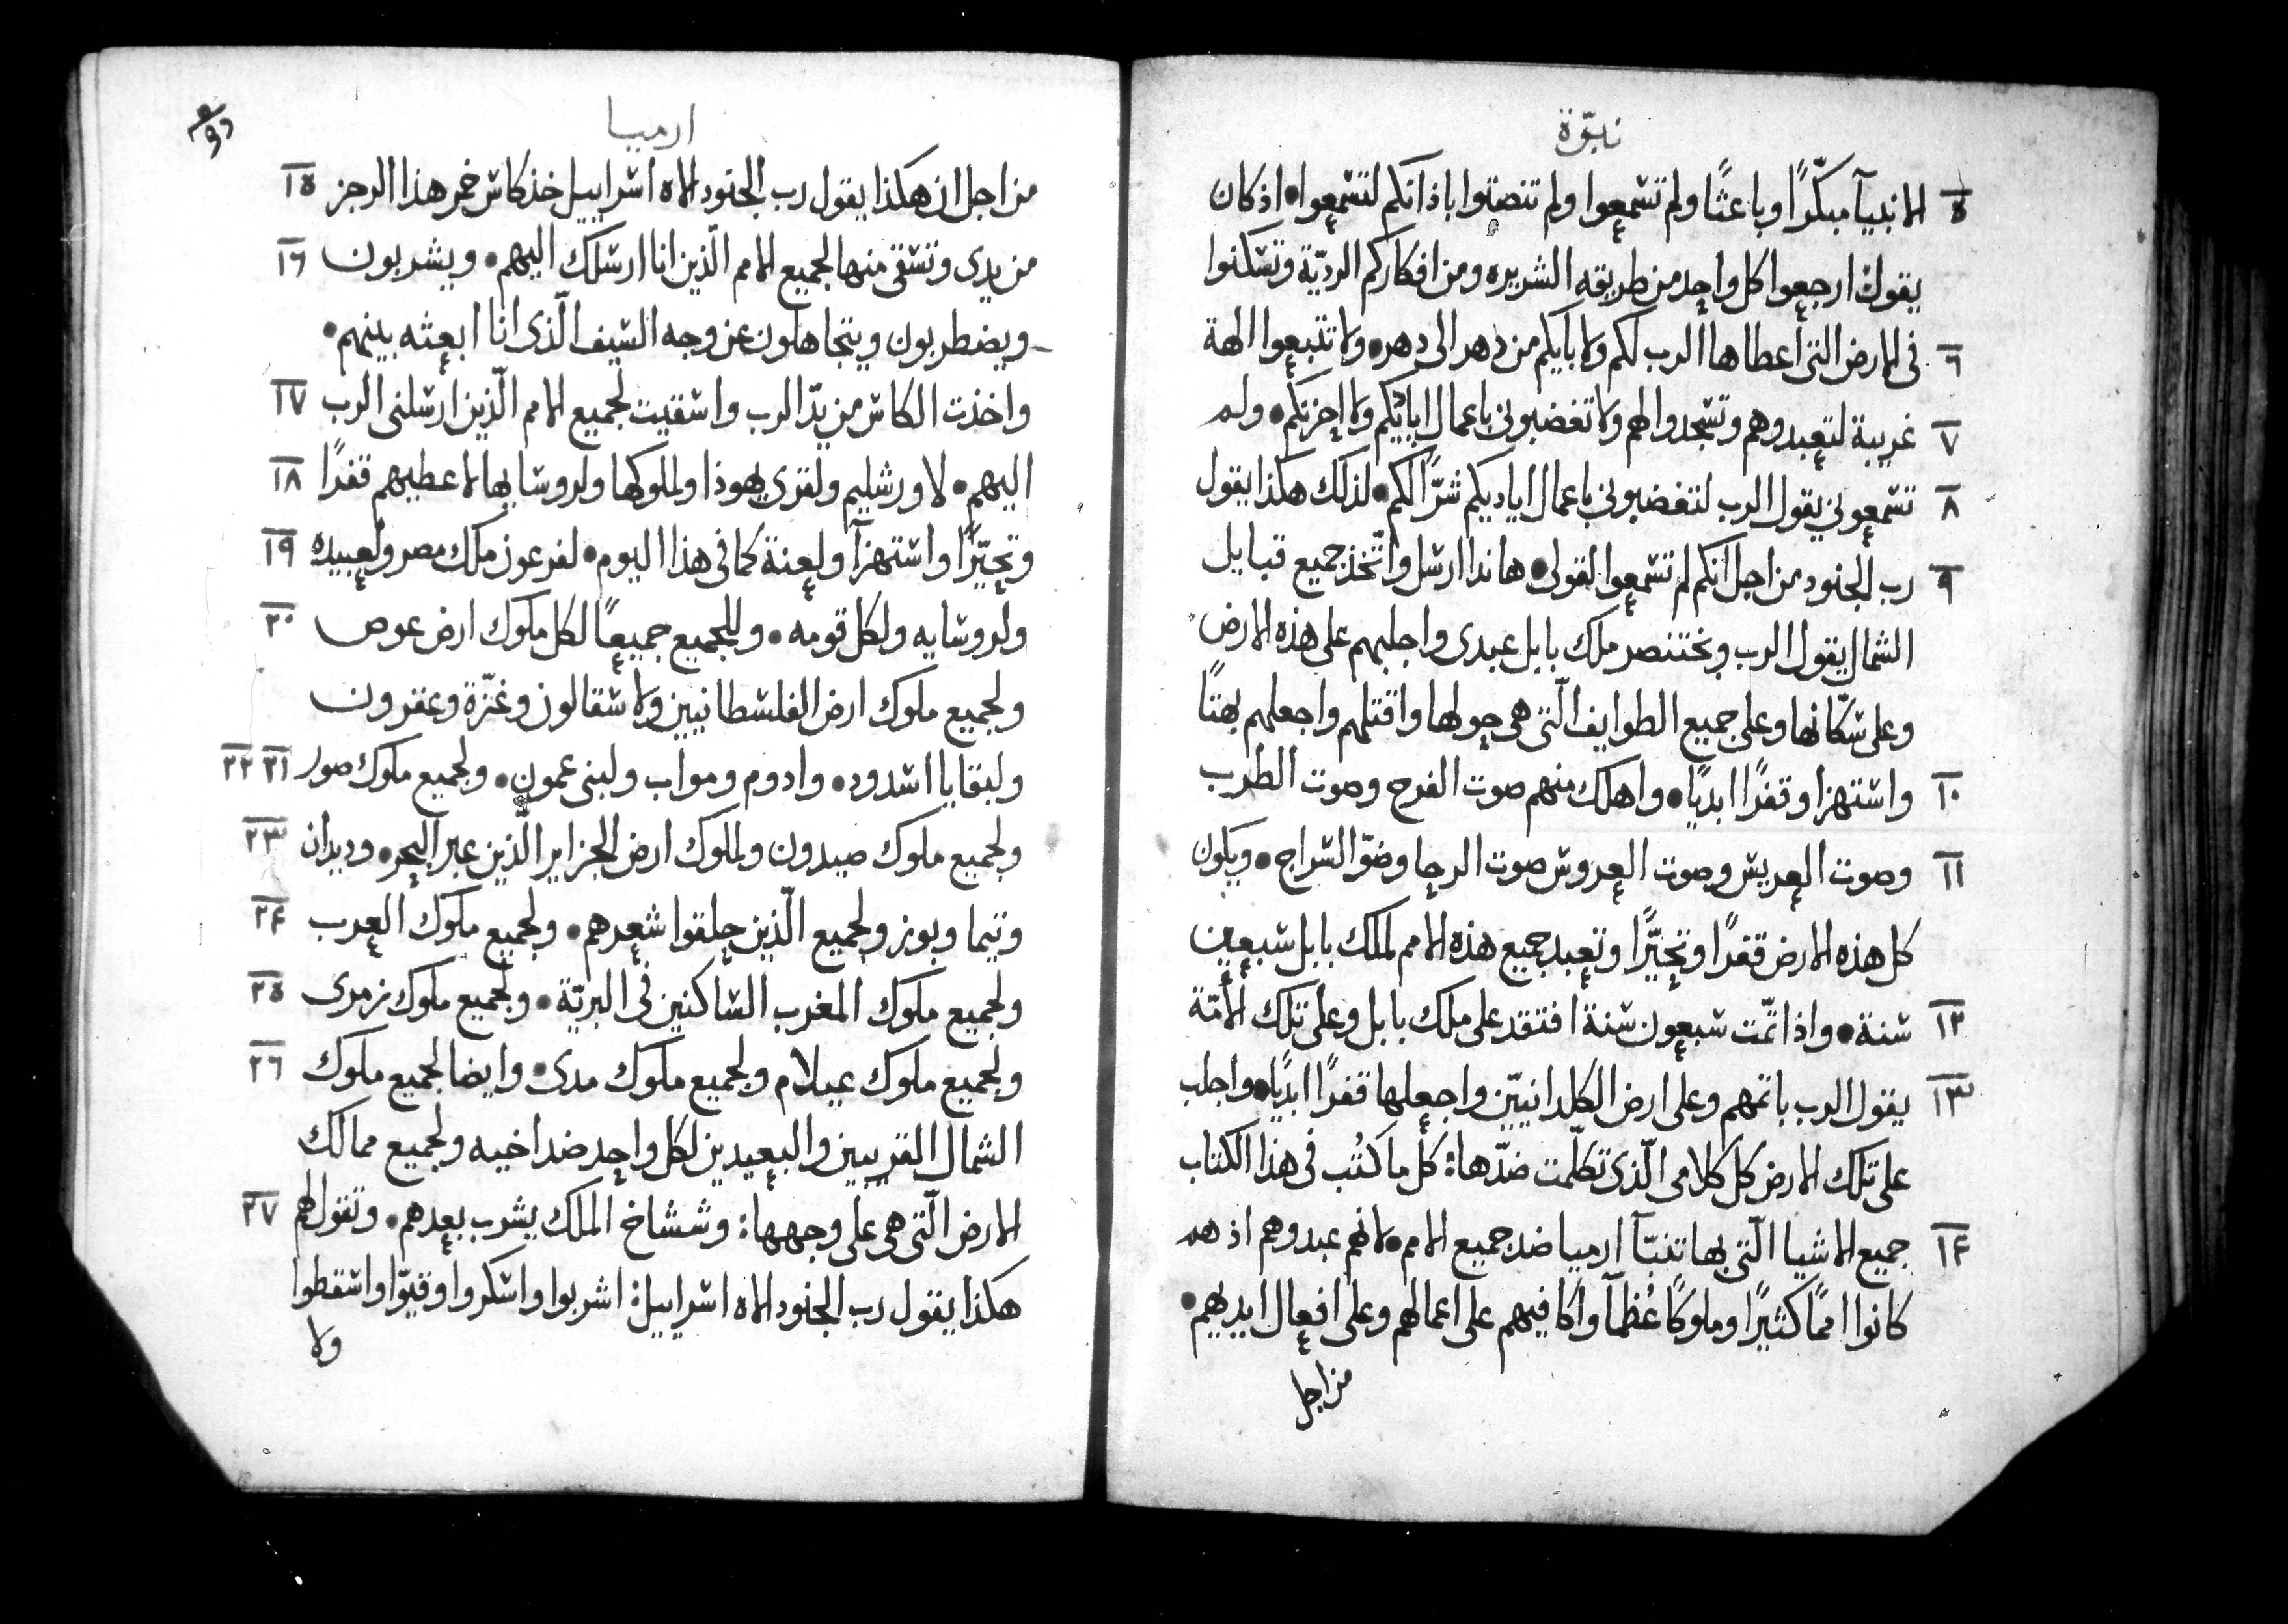 نبوّة
٥ الانبيآ مبكّرًا وباعثًا ولم تسمعوا ولم تنصتوا باذانكم لتسمعوا • اذ كان
يقول ارجعوا كل واحد من طريقه الشريره ومن افكاركم الرديّة وتسكنوا
٦ فى الارض التى اعطاها الرب لكم ولابايكم من دهر الى دهر • ولا تتبعوا الهة
٧ غريبة لتعبدوهم وتسجدوا لهم ولا تغضبونى باعمال ايائكم ولا احزنكم • ولم
٨ تسمعونى يقول الرب لتغضبونى باعمال اياديكم شرًّا لكم • لذلك هكذا يقول
٩ رب الجنود من اجل انكم لم تسمعوا لقولى • هانذا ارسل واتّخذ جميع قبايل
الشمال يقول الرب وبختنصر ملك بابل عبدى واجلبهم على هذه الارض
وعلى سكّانها وعلى جميع الطوايف الّتى هى حولها واقتلهم واجعلهم بهتًا
١٠ واستهزا وقفرًا ابديًا • واهلك منهم صوت الفرح وصوت الطرب
١١ وصوت العريس وصوت العروس صوت الرحا وضوّ السراج • ويكون
كل هذه الارض قفرًا وتحيّرًا وتعبد جميع هذه الامم لملك بابل سبعين
١٢ سنة • واذا تمّت سبعون سنة افتقد على ملك بابل وعلى تلك الامّة
١٣ يقول الرب باثمهم وعلى ارض الكلدانيّين واجعلها قفرًا ابديًا • واجلب
على تلك الارض كل كلامى الّذى تكلّمت ضدّها: كل ما كُتب فى هذا الكتاب
١٤ جميع الاشيا الّتى بها تنبّآ ارميا ضد جميع الامم • لانهم عبدوهم اذ هم
كانوا اممًا كثيرًا وملوكًا عُظمآ واكافيهم على اعمالهم وعلى افعال ايديهم •
من اجل
ارميا
من اجل ان هكذا يقول رب الجنود الاه اسراييل خذ كاس خمر هذا الرجز ١٥
من يدى وتسقى منها لجميع الامم الّذين انا ارسلك اليهم • ويشربون ١٦
ويضطربون ويتجاهلون عن وجه السيف الّذى انا ابعثه بينهم •
واخذت الكاس من يدّ الرب واسقيت لجميع الامم الّذين ارسلنى الرب ١٧
اليهم • لاورشليم ولقرى يهوذا ولملوكها ولروسايها لاعطيهم قفرًا ١٨
وتحيّرًا واستهزآ ولعنة كما فى هذا اليوم • لفرعون ملك مصر ولعبيده ١٩
ولروسايه ولكل قومه • وللجميع جميعًا لكل ملوك ارض عوص ٢٠
ولجميع ملوك ارض الفلسطانيين ولاسقالون وغزّة وعقرون
ولبقايا اسدود • وادوم ومواب ولبنى عمون • ولجميع ملوك صور ٢١ ٢٢
ولجميع ملوك صيدون ولملوك ارض الجزاير الّذين عبر البحر • وديدان ٢٣
وتيما وبوز ولجميع الّذين حلقوا شعرهم • ولجميع ملوك العرب ٢٤
ولجميع ملوك المغرب الساكنين فى البريّة • ولجميع ملوك زمرى ٢٥
ولجميع ملوك عيلام ولجميع ملوك مدى • وايضا لجميع ملوك ٢٦
الشمال القريبين والبعيدين لكل واحد ضد اخيه ولجميع ممالك
الارض الّتى هى على وجهها: وششاخ الملك يشرب بعدهم • وتقول لهم ٢٧
هكذا يقول رب الجنود الاه اسراييل: اشربوا واسكروا وقيّوا واسقطوا
ولا